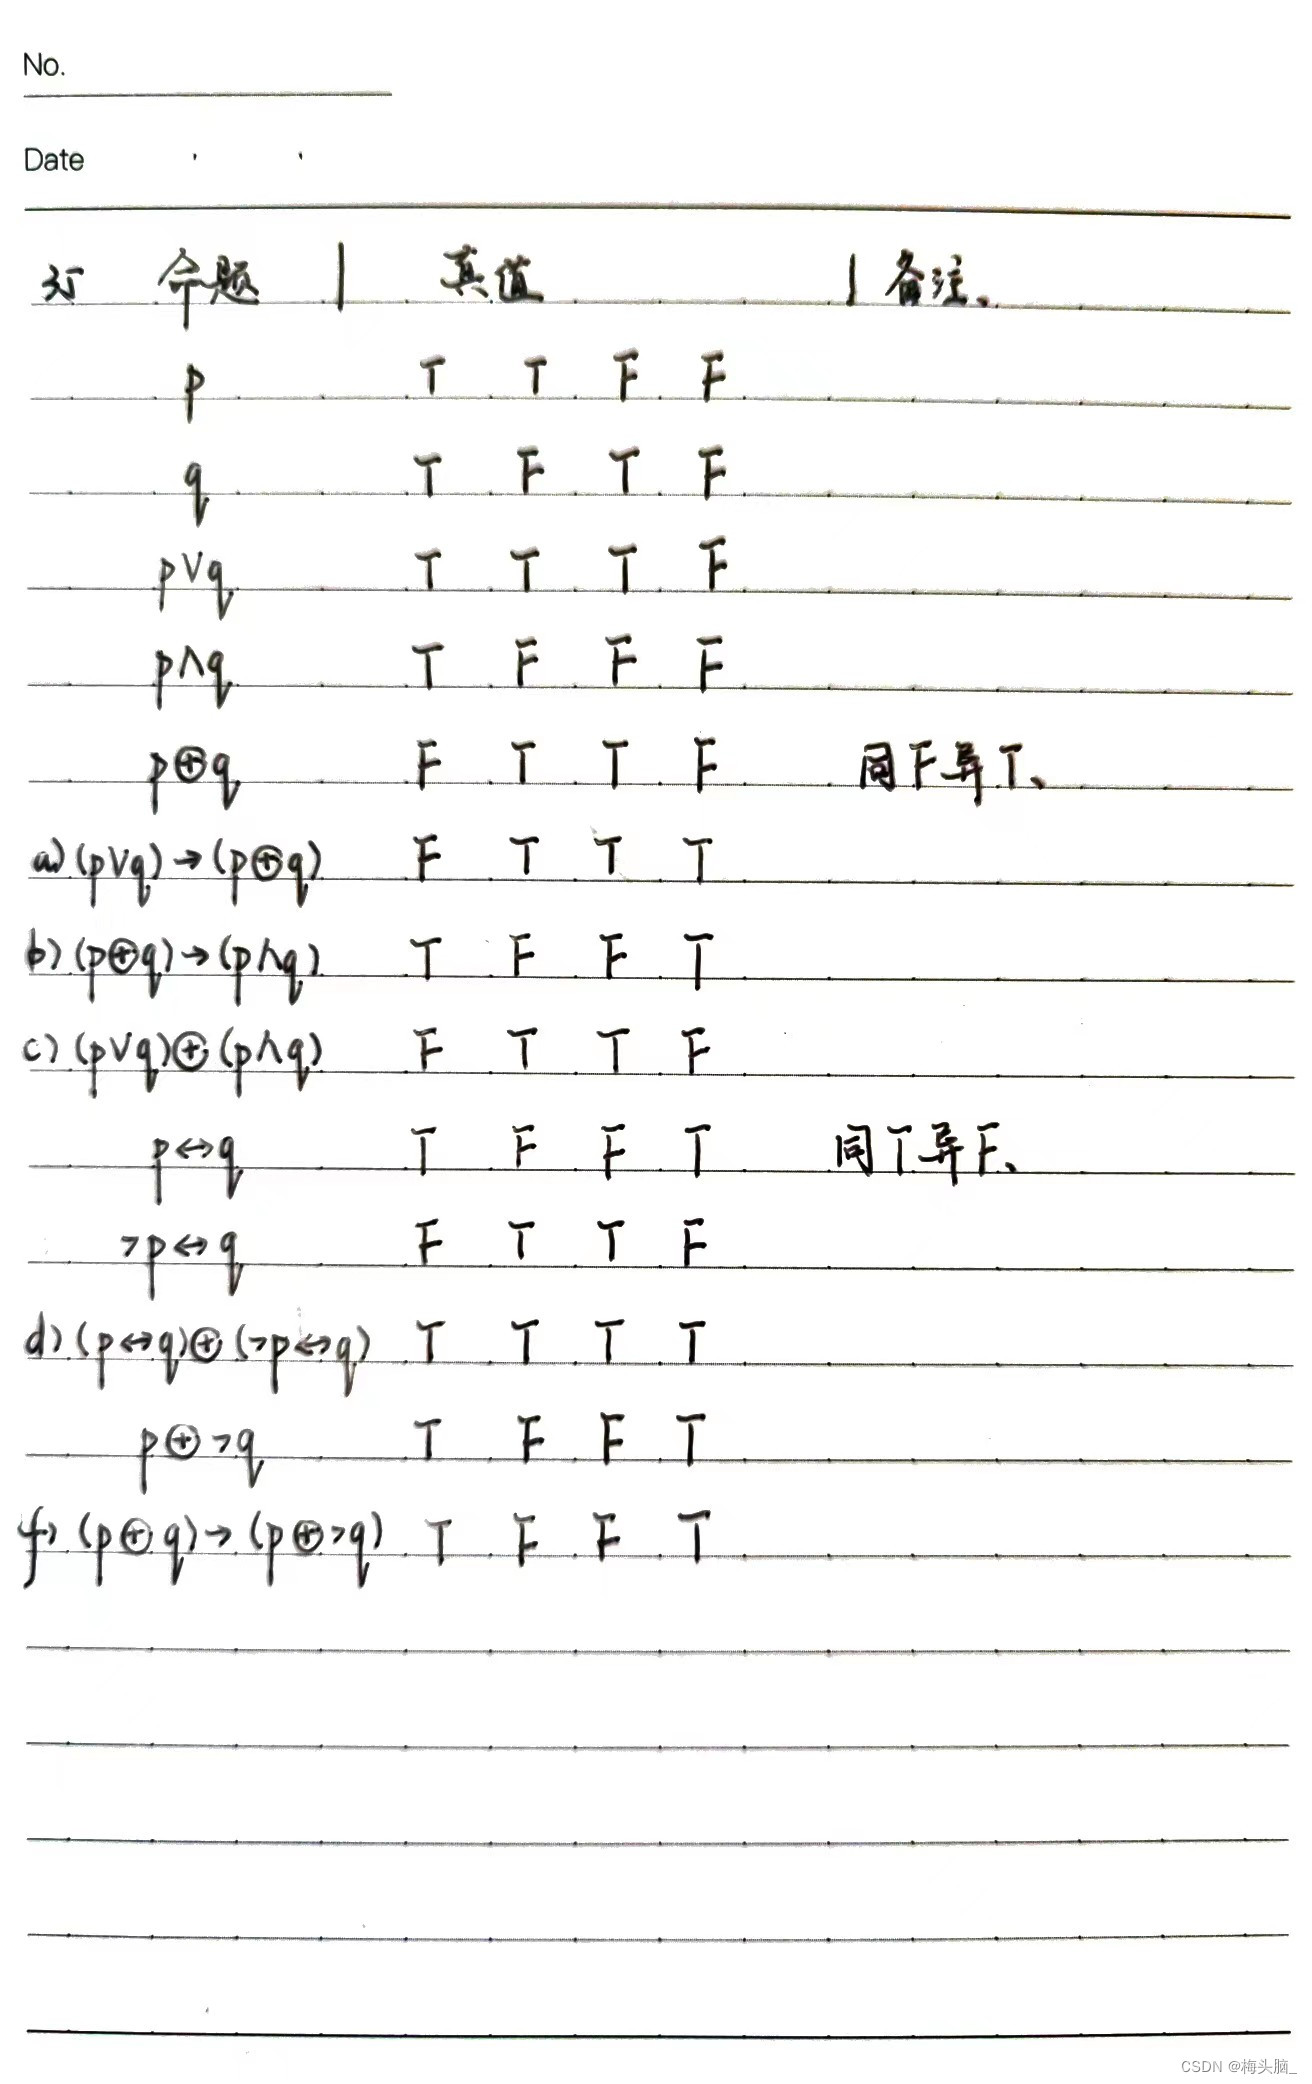 No.
Date
35 命题 | 真值 | 备注、
p T T F F
q T F T F
p∨q T T T F
p∧q T F F F
p⊕q F T T F 同F异T、
a) (p∨q)→(p⊕q) F T T T
b) (p⊕q)→(p∧q) T F F T
c) (p∨q)⊕(p∧q) F T T F
p↔q T F F T 同T异F、
¬p↔q F T T F
d) (p↔q)⊕(¬p↔q) T T T T
p⊕¬q T F F T
f) (p⊕q)→(p⊕¬q) T F F T
CSDN @梅头脑_